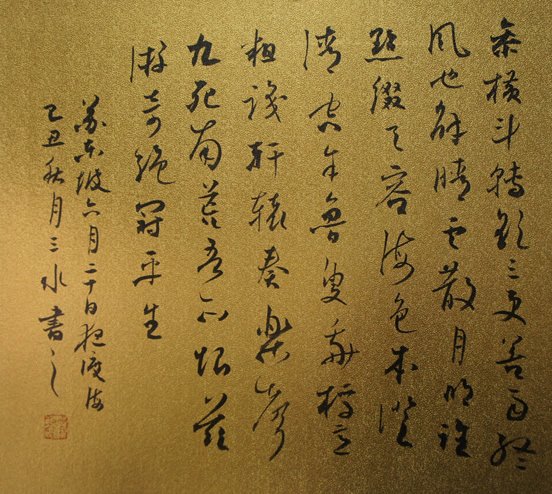 參橫斗轉欲三更苦雨終
風也解晴云散月明誰
點綴天容海色本澄
清空余魯叟乘桴意
粗識軒轅奏樂聲
九死南荒吾不恨茲
游奇絕冠平生
蘇東坡六月二十日夜渡海
己丑秋月三水書之